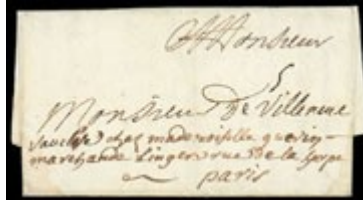 A Monsieur
Monsieur De Villeneuve
chez mademoiselle guerin
marchande Lingere rue de la harpe
paris